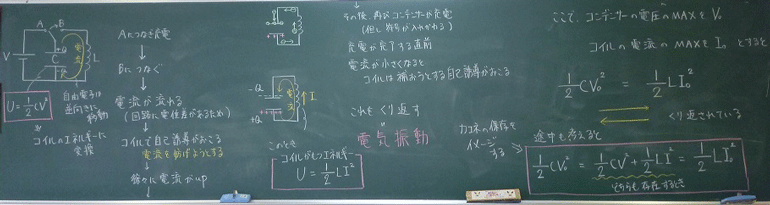 A B
V
C
+Q
-Q
L
電流
自由電子は
逆向きに
移動
U = 1/2 CV²
コイルのエネルギーに
変換
Aにつなぎ充電
↓
Bにつなぐ
↓
電流が流れる
(回路に電位差があるため)
↓
コイルで自己誘導がおこる
電流を妨げようとする
↓
徐々に電流がup
↓
-Q
+Q
電流
I
このとき
コイルがもつエネルギー
U = 1/2 LI²
その後、再びコンデンサーが充電
(但し符号が入れかわる)
充電が完了する直前
電流が小さくなると
コイルは補おうとする自己誘導がおこる
これをくり返す
電気振動
ここで、コンデンサーの電圧のMAXをV₀
コイルの電流のMAXをI₀とすると
1/2 CV₀² = 1/2 LI₀²
くり返されている
力エネの保存を
イメージ
する
途中も考えると
1/2 CV₀² = 1/2 CV² + 1/2 LI² = 1/2 LI₀²
どちらも存在するとき